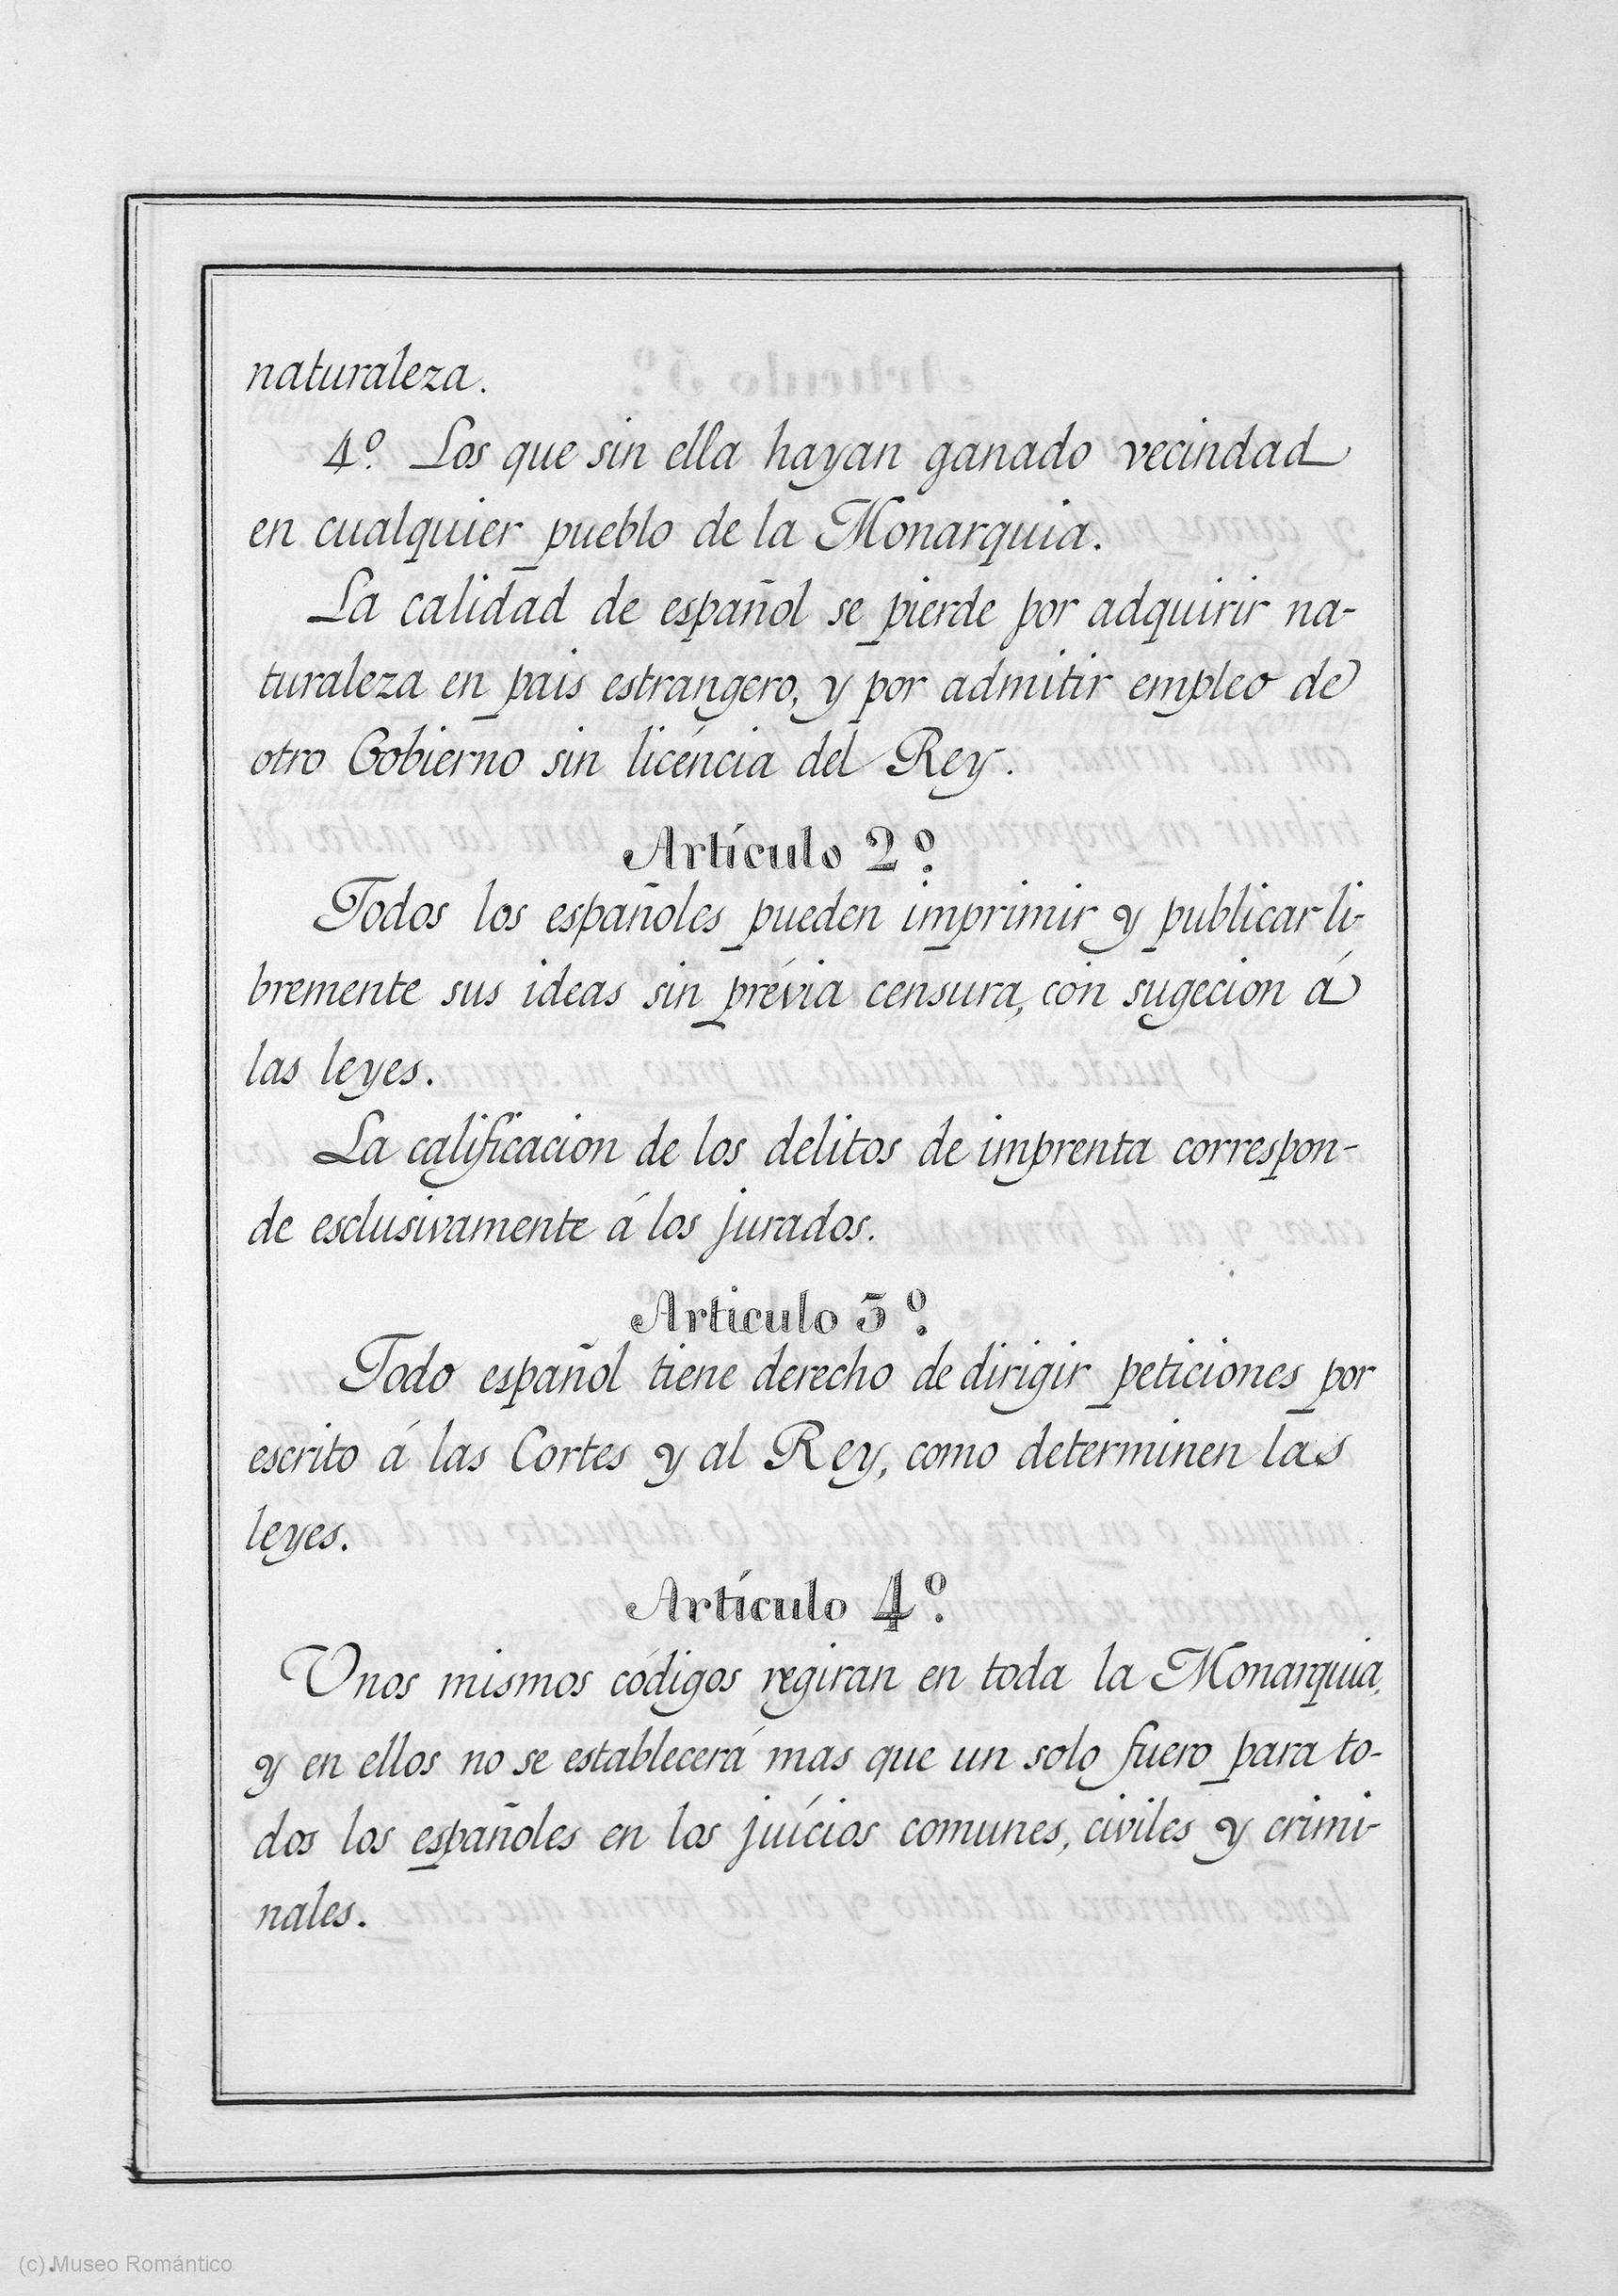 naturaleza.
4º. Los que sin ella hayan ganado vecindad
en cualquier pueblo de la Monarquia.
La calidad de español se pierde por adquirir na-
turaleza en pais estrangero, y por admitir empleo de
otro Gobierno sin licéncia del Rey.
Artículo 2º.
Todos los españoles pueden imprimir y publicar li-
bremente sus ideas sin prévia censura, con sugecion á
las leyes.
La calificacion de los delitos de imprenta correspon-
de esclusivamente á los jurados.
Articulo 3º.
Todo español tiene derecho de dirigir peticiones por
escrito á las Cortes y al Rey, como determinen las
leyes.
Artículo 4º.
Unos mismos códigos regiran en toda la Monarquia,
y en ellos no se establecerá mas que un solo fuero para to-
dos los españoles en los juícios comunes, civiles y crimi-
nales.
(c) Museo Romántico